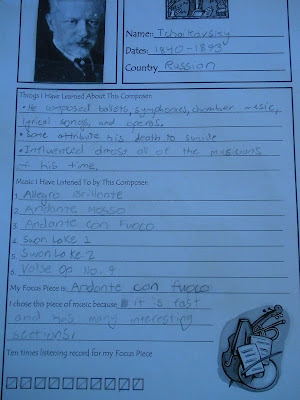 Name: Tchaikovsky
Dates: 1840-1893
Country Russian
Things I Have Learned About This Composer:
• He composed ballets, symphonies, chamber music,
lyrical songs, and operas.
• Some attribute his death to suicide
• Influenced almost all of the musicians
+ his time.
Music I Have Listened To by This Composer:
1. Allegro Brillante
2. Andante Mosso
3. Andante con Fuoco
4. Swan Lake 1
5. Swan Lake 2
6. Valse Op No. 9
My Focus Piece is: Andante con fuoco
I chose this piece of music because it is fast
and has many interesting
sections.
Ten times listening record for my Focus Piece